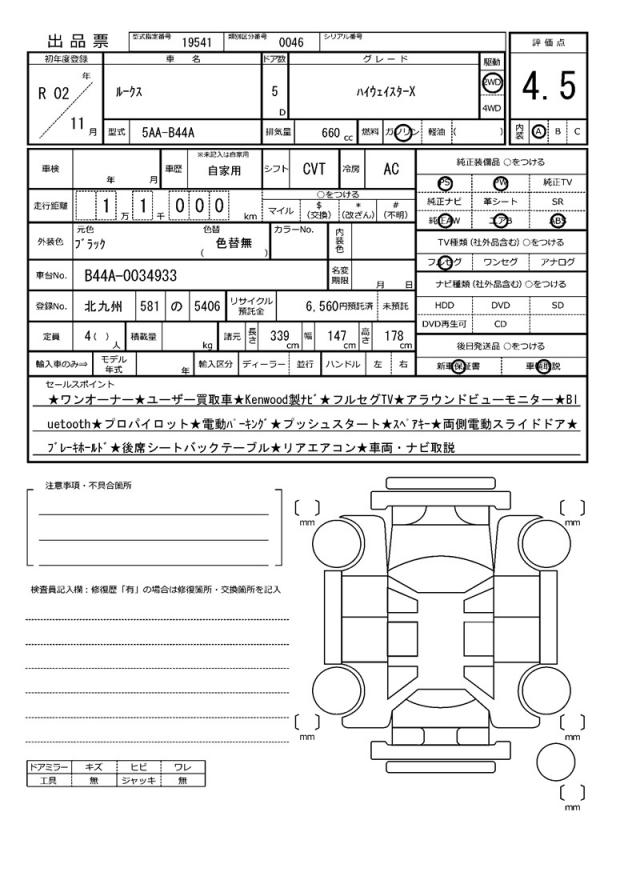 出品票 型式指定番号 19541 類別区分番号 0046 シリアル番号
評価点
初年度登録 車名 ドア数 グレード 駆動
R 02 年 11 月 ルークス 5 D ハイウェイスターX 2WD 4WD
4.5
型式 5AA-B44A 排気量 660 cc 燃料 ガソリン 軽油 ( ) 内装 A B C
車検 年 月 車歴 ※未記入は自家用 自家用 シフト CVT 冷房 AC
純正装備品 ○をつける
PS PW 純正TV
純正ナビ 革シート SR
純正AW エアB ABS
走行距離 1 万 1 千 0 0 0 km ○をつける
マイル $ (交換) * (改ざん) # (不明)
外装色 元色 ブラック 色替 ( 色替無 ) カラーNo. 内装色
TV種類 (社外品含む) ○をつける
フルセグ ワンセグ アナログ
車台No. B44A-0034933 名変期限 月 日
ナビ種類 (社外品含む) ○をつける
登録No. 北九州 581 の 5406 リサイクル預託金 6,560 円預託済 未預託
HDD DVD SD
DVD再生可 CD
定員 4( ) 人 積載量 kg 諸元 長さ 339 cm 幅 147 cm 高さ 178 cm
後日発送品 ○をつける
輸入車のみ⇒ モデル年式 年 輸入区分 ディーラー 並行 ハンドル 左 右
新車保証書 車輌取説
セールスポイント
★ワンオーナー★ユーザー買取車★Kenwood製ナビ★フルセグTV★アラウンドビューモニター★Bl
uetooth★プロパイロット★電動パーキング★プッシュスタート★スペアキー★両側電動スライドドア★
ブレーキホールド★後席シートバックテーブル★リアエアコン★車両・ナビ取説
注意事項・不具合箇所
検査員記入欄：修復歴「有」の場合は修復箇所・交換箇所を記入
mm mm
mm mm
mm
ドアミラー キズ ヒビ ワレ
工具 無 ジャッキ 無